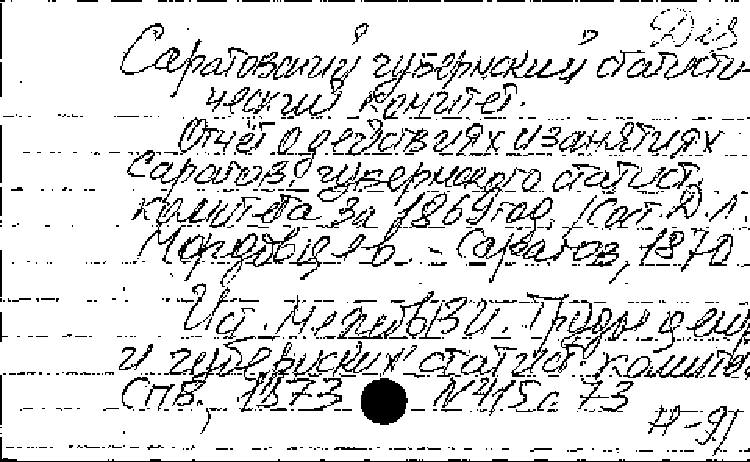 Dis
Саратовский губернский статисти-
ческий комитет.
Отчёт о действиях и занятиях
Саратов. губернского статист.
комитета за 1869 год. /Сост. Д.Л.
Мордовцев. - Саратов, 1870
Ист. Межов В.И. Труды центр
и губернских статист. комите
СПб. 1873 N 415 с. 73